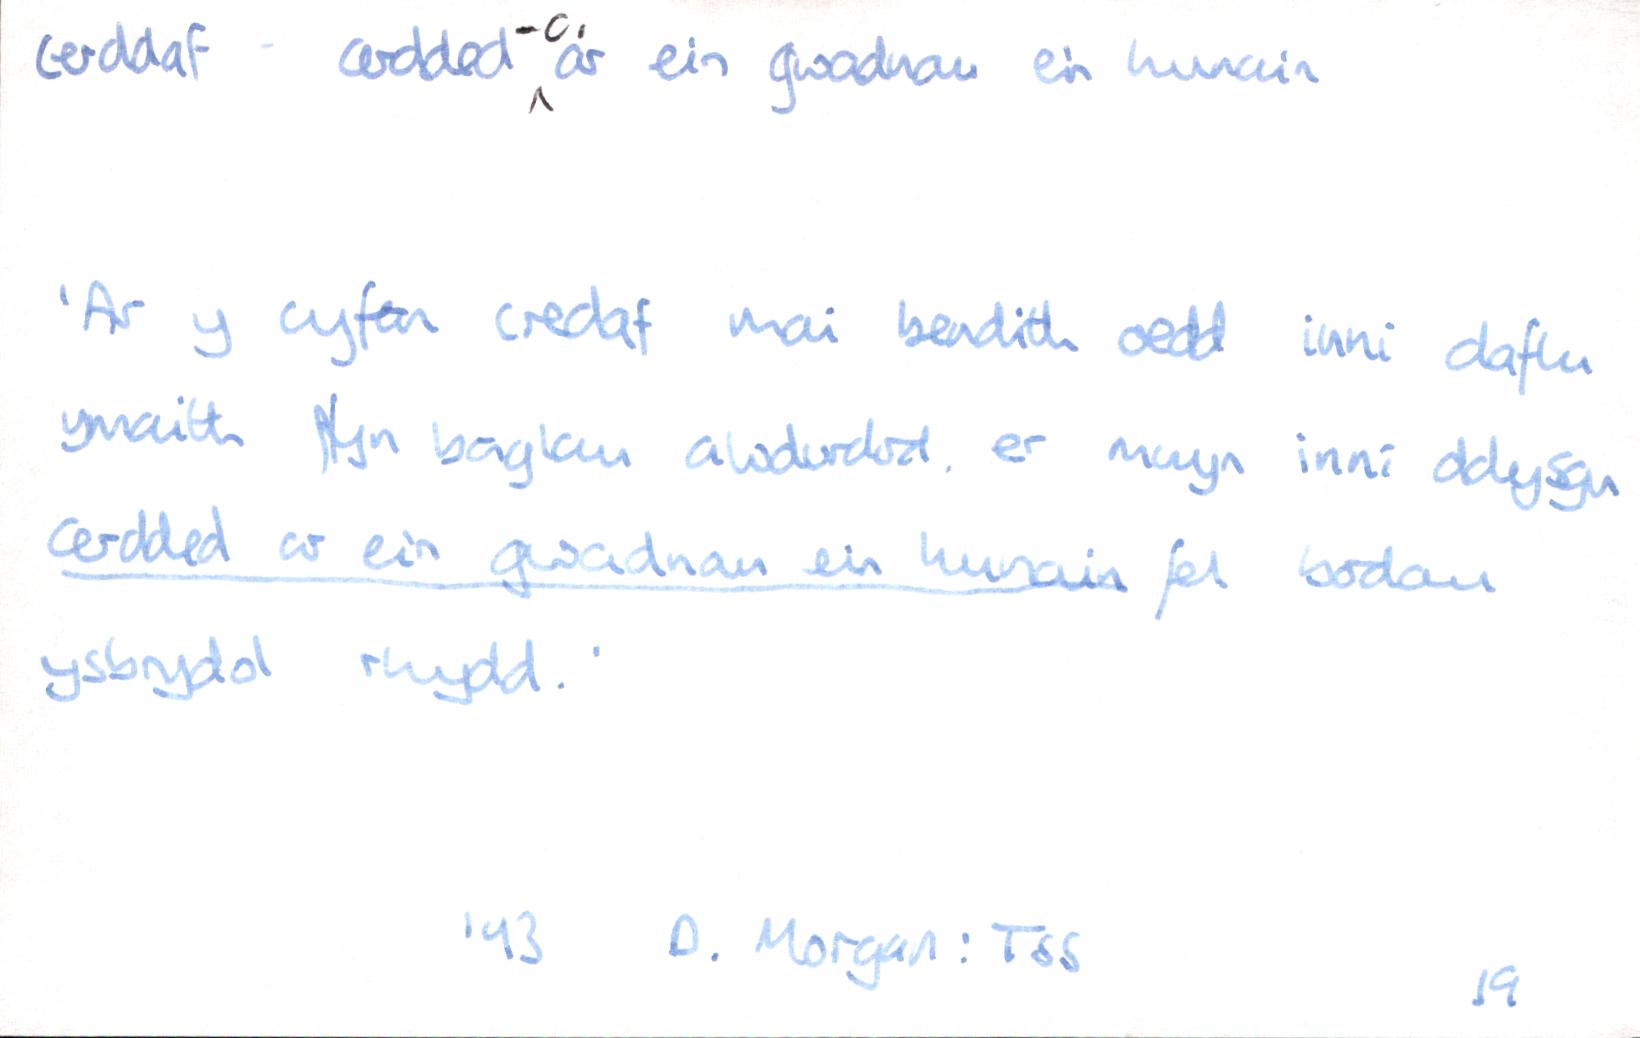 cerddaf - cerdded -af ar ein gwadnau ein hunain
'Ar y cyfan credaf mai bendith oedd inni daflu
ymaith ffyn baglau awdurdod, er mwyn inni ddysgu
cerdded ar ein gwadnau ein hunain fel bodau
ysbrydol rhydd.'
'43 D. Morgan: TSS
19